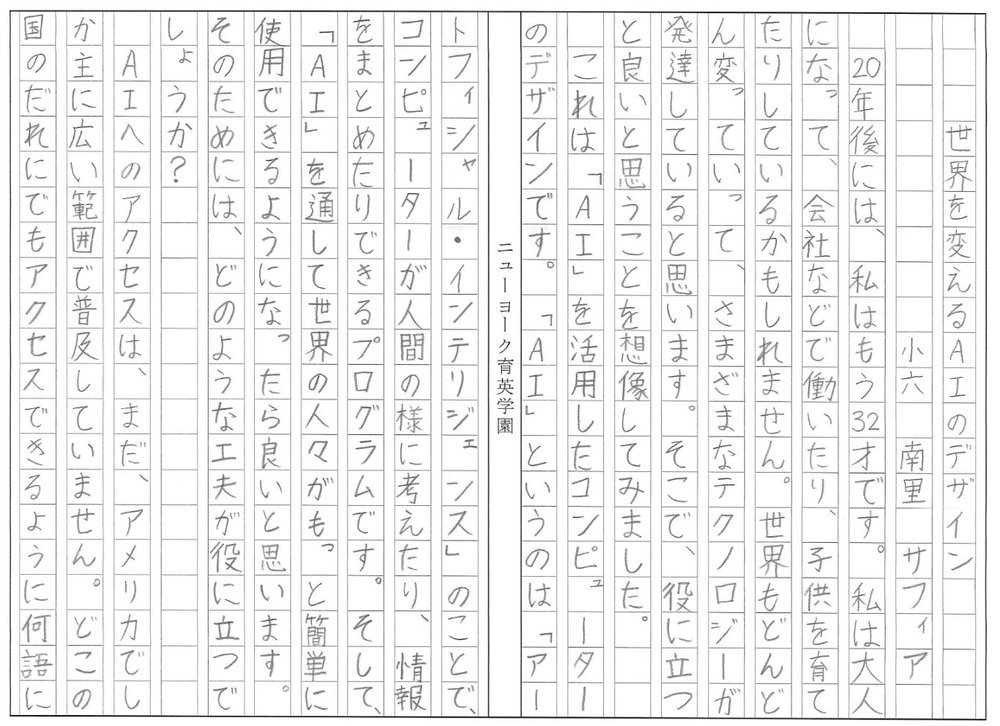 世界を変えるAIのデザイン
小六　南里　サフィア
20年後には、私はもう32才です。私は大人
になって、会社などで働いたり、子供を育て
たりしているかもしれません。世界もどんど
ん変っていって、さまざまなテクノロジーが
発達していると思います。そこで、役に立つ
と良いと思うことを想像してみました。
これは「AI」を活用したコンピューター
のデザインです。「AI」というのは「アー
ニューヨーク育英学園
トフィシャル・インテリジェンス」のことで、
コンピューターが人間の様に考えたり、情報
をまとめたりできるプログラムです。そして、
「AI」を通して世界の人々がもっと簡単に
使用できるようになったら良いと思います。
そのためには、どのような工夫が役に立つで
しょうか？
AIへのアクセスは、まだ、アメリカでし
か主に広い範囲で普及していません。どこの
国のだれにでもアクセスできるように何語に